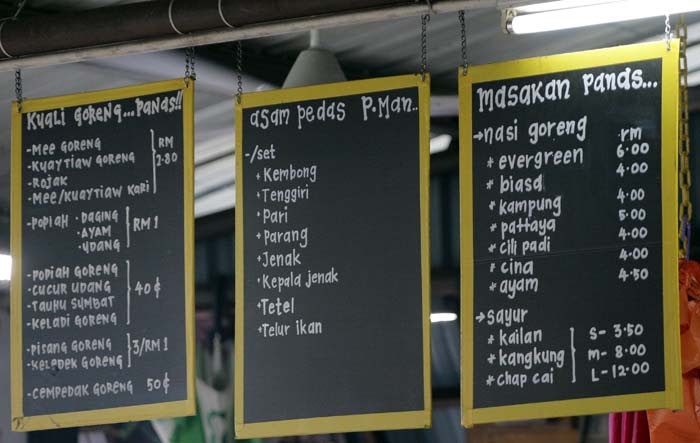 Kuali Goreng... Panas!!
- Mee Goreng
- Kuaytiaw Goreng
- Rojak
- Mee/Kuaytiaw Kari
RM 2.80
- Popiah . Daging
. Ayam
. Udang
RM 1
- Popiah Goreng
- Cucur Udang
- Tauhu Sumbat
- Keladi Goreng
40 ¢
- Pisang Goreng
- Keledek Goreng
3/RM1
- Cempedak Goreng 50¢
asam pedas P.Man..
-/set
+ Kembong
+ Tenggiri
+ Pari
+ Parang
+ Jenak
+ Kepala jenak
+ Tetel
+ Telur ikan
masakan panas...
→ nasi goreng rm
* evergreen 6.00
* biasa 4.00
* kampung 4.00
* pattaya 5.00
* cili padi 4.00
* cina 4.00
* ayam 4.50
→ sayur
* kailan S- 3.50
* kangkung M- 8.00
* chap cai L- 12.00